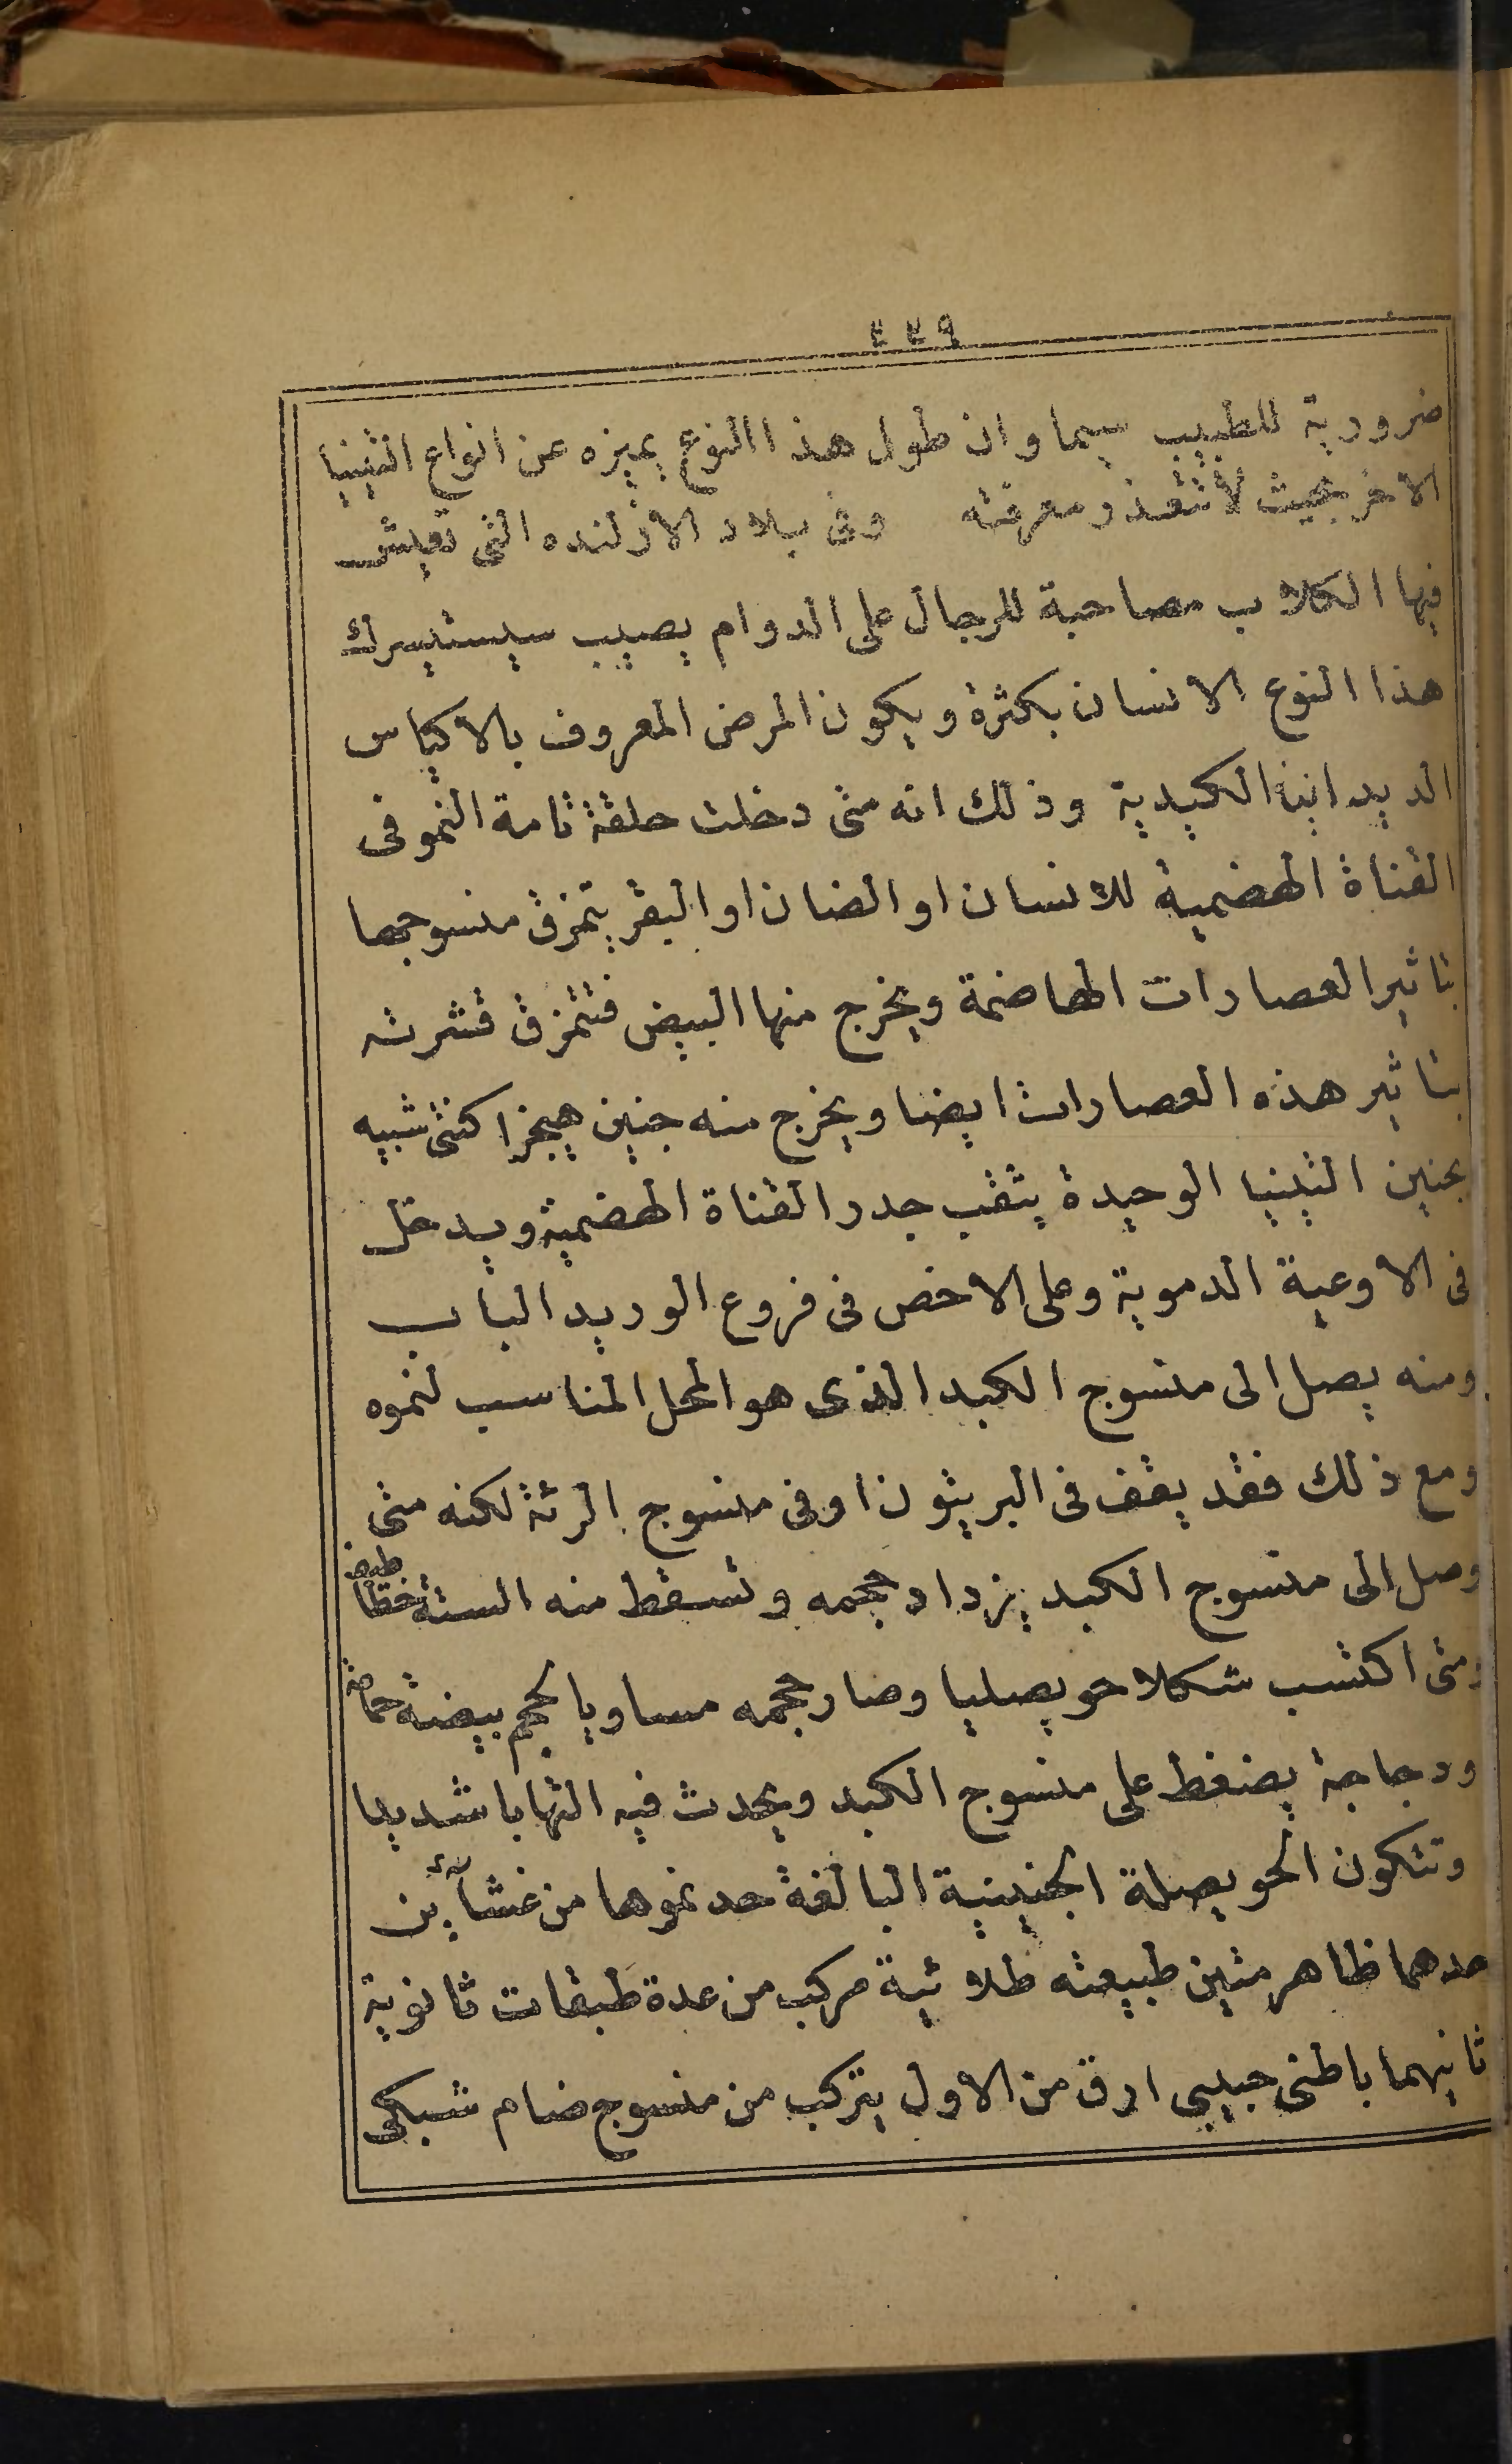 ٤٤٩
ضرورية للطبيب سيما وان طول هذا النوع يميزه عن انواع التينيا
الاخر بحيث لا تتعذر معرفته وفى بلاد الازلنده التى تعيش
فيها الكلاب مصاحبة للرجال على الدوام يصيب سيستيسرك
هذا النوع الانسان بكثرة ويكون المرض المعروف بالاكياس
الديدانية الكبدية وذلك انه متى دخلت حلقة تامة النمو فى
القناة الهضمية للانسان او الضان او البقر يتمزق منسوجها
بتاثير العصارات الهاضمة ويخرج منها البيض فتتمزق قشرته
بتاثير هذه العصارات ايضا ويخرج منه جنين هيجزا كنتى شبيه
بجنين التينيا الوحيدة يثقب جدر القناة الهضمية ويدخل
فى الاوعية الدموية وعلى الاخص فى فروع الوريد الباب
ومنه يصل الى منسوج الكبد الذى هو المحل المناسب لنموه
ومع ذلك فقد يقف فى البريتون او فى منسوج الرئة لكنه متى
وصل الى منسوج الكبد يزداد حجمه وتسقط منه الستة خطا طيف
ومتى اكتسب شكلا حويصليا وصار حجمه مساويا لحجم بيضة حمامة
ودجاجة يضغط على منسوج الكبد ويحدث فيه التهابا شديدا
وتتكون الحويصلة الجنينية البالغة حد نموها من غشآئين
حدهما ظاهر متين طبيعته طلائية مركب من عدة طبقات ثانوية
ثانيهما باطنى حبيبى ارق من الاول يتركب من منسوج ضام شبكى